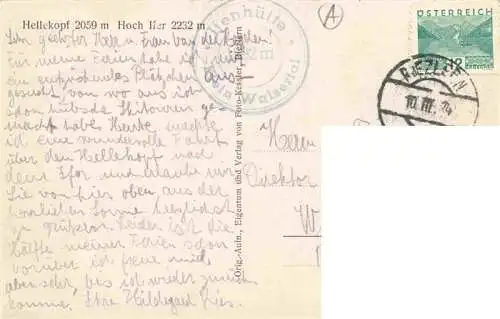 Hellekopf 2059 m Hoch Ifer 2232 m
Sehr geehrter Herr u. Frau van der
Für meine Ferien habe ich mir
ein entzückendes Plätzchen aus-
gesucht von wo aus ich
schon hübsche Skitouren ge-
macht habe. Heute machte
ich eine wundervolle Fahrt
über den Hellekopf nach
dem Ifer und erlaube mir
Sie von hier oben aus der
herrlichen Sonne herzlichst
zu grüßen. Leider ist die
Hälfte meiner Ferien schon
vorüber ich freue mich
aber sehr, bis ich wieder zurück
komme. Ihre Hildegard
Orig.-Aufn., Eigentum und Verlag von Foto-Kessler, Riezlern
Walsertal
ÖSTERREICH
12
RIEZLERN
10. III. 34
Herrn
Direktor
W
A